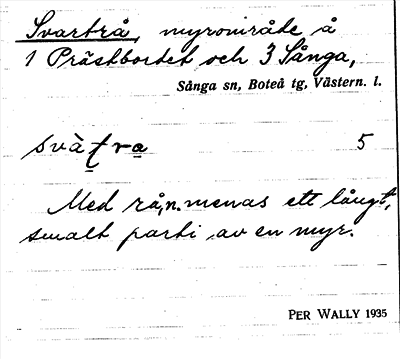 Svartrå, myrområde å
1 Prästbordet och 3 Sånga,
Sånga sn, Boteå tg, Västern. l.
svàt̠ra̠ 5
Med rå, n. menas ett långt,
smalt parti av en myr.
PER WALLY 1935